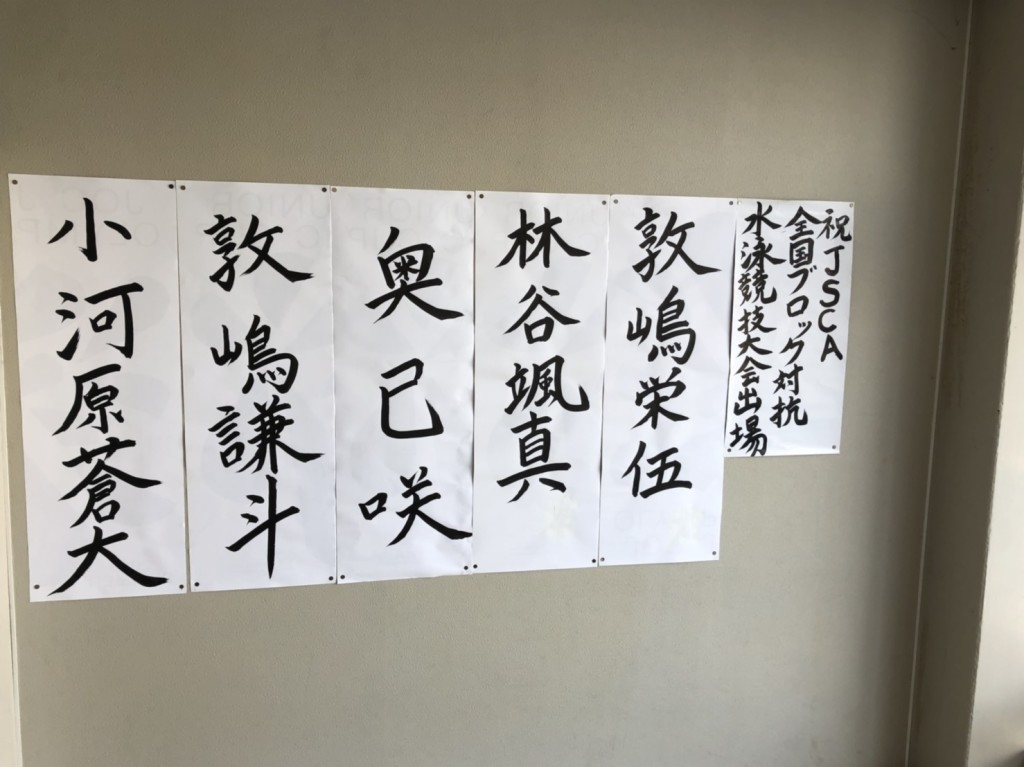 祝JSCA
全国ブロック対抗
水泳競技大会出場
敦嶋栄伍
林谷颯真
奥己咲
敦嶋謙斗
小河原蒼大